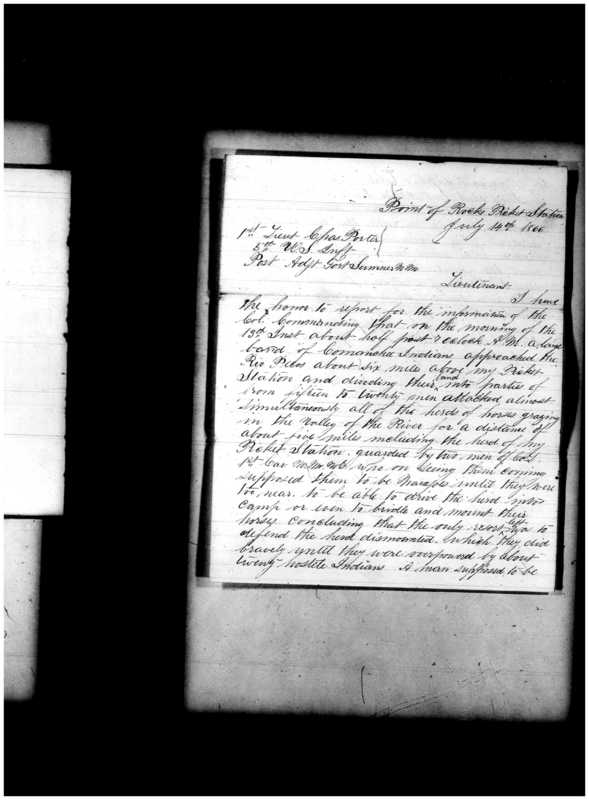 Point of Rocks Picket Station
July 14th 1866
1st Lieut Chas Porter
5th U.S. Inft
Post Adjt Fort Sumner N.M.
Lieutenant
I have
the honor to report for the information of the
Col. Commanding that on the morning of the
13th Inst about half past o'clock A.M. a large
band of Comanche Indians approached the
Rio Pecos about six miles above my Picket
Station and dividing their band into parties of
from fifteen to twenty men attacked almost
simultaneously all of the herds of horses grazing
in the valley of the River for a distance of
about five miles including the herd of my
Picket Station guarded by two men of Co
1st Cav N.M. Vols who on seeing them coming
supposed them to be Navajoes until they were
too near to be able to drive the herd into
Camp or even to bridle and mount their
horses Concluding that the only resort left was to
defend the herd dismounted which they did
bravely until they were overpowered by about
twenty hostile Indians A man supposed to be